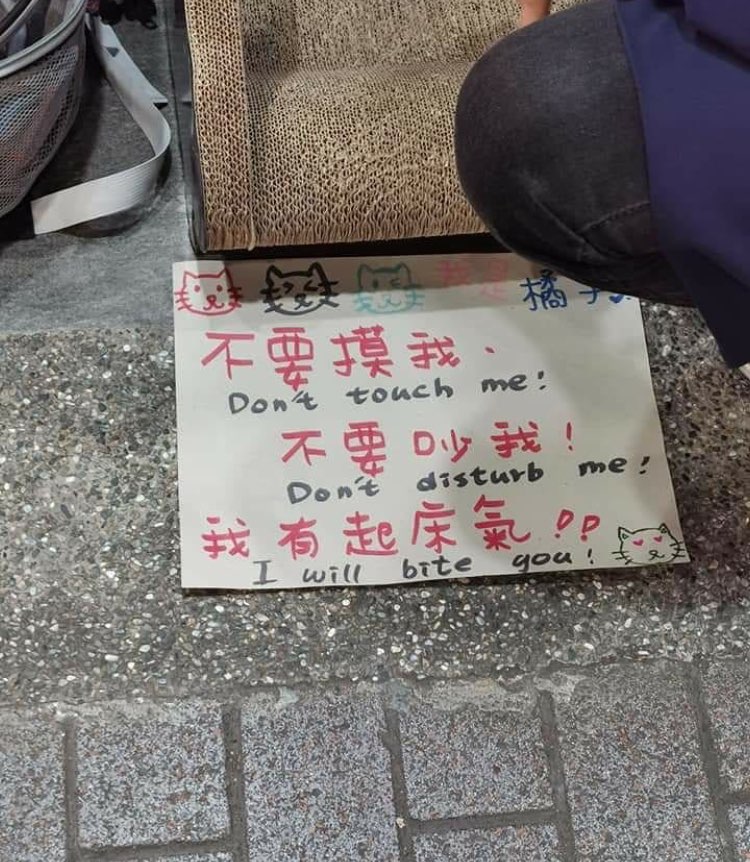 我是 橘子
不要摸我.
Don't touch me!
不要吵我!
Don't disturb me!
我有起床氣!!
I will bite you!